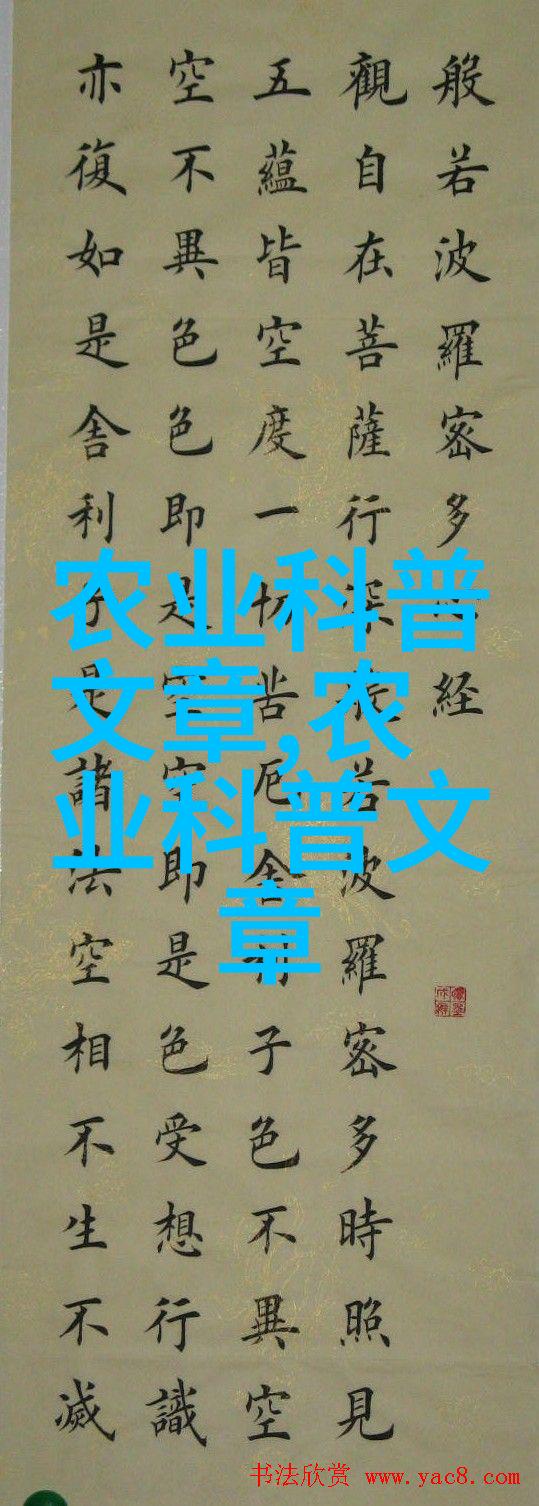 般若波羅密多心経
觀自在菩薩行深般若波羅密多時照見
五蘊皆空度一切苦厄舍利子色不異空
空不異色色即是空空即是色受想行識
亦復如是舍利子是諸法空相不生不滅
农业科普
文章,农
业科普文
章
书法欣赏 www.yac8.com